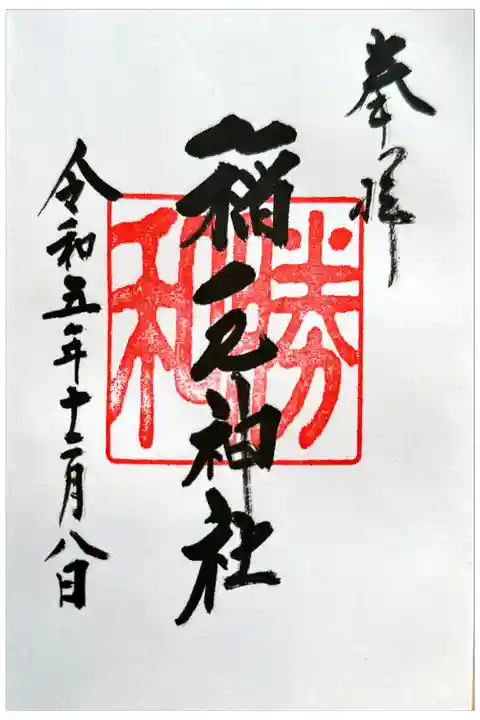 奉拝
稲毛神社
勝和
令和五年十二月八日